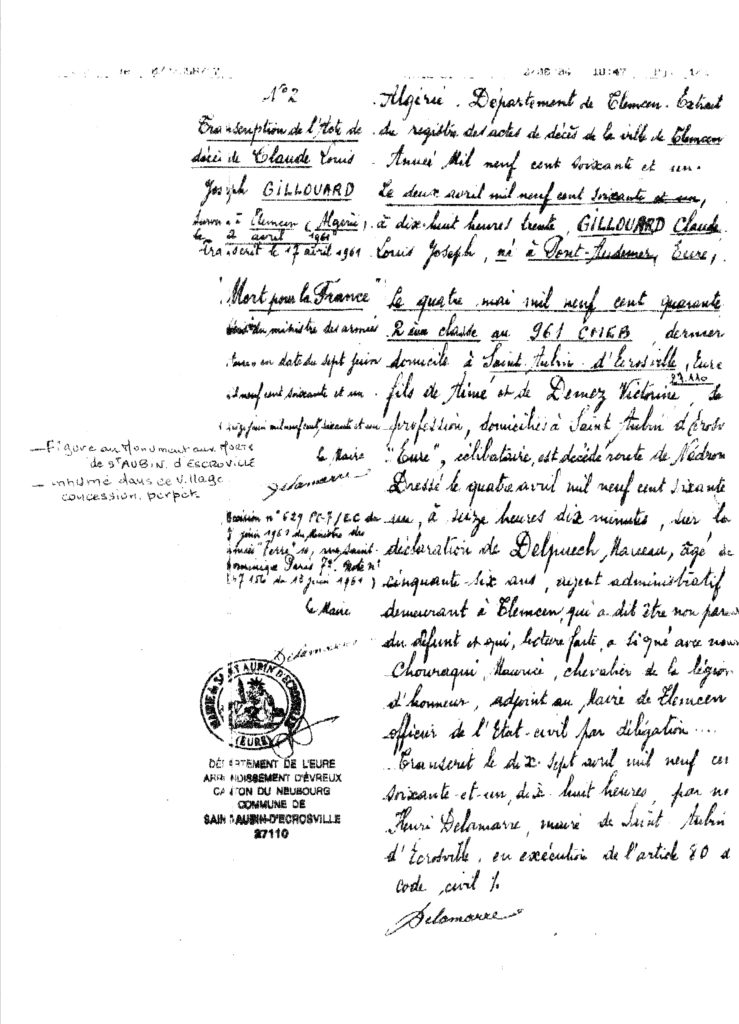 10:47
N° 2
Transcription de l'Acte de
décès de Claude Louis
Joseph GILLOUARD
à Tlemcen (Algérie)
le 2 avril 1961
Transcrit le 17 avril 1961
"Mort pour la France"
du ministre des armées
en date du sept juin
mil neuf cent soixante et un
juin mil neuf cent soixante et un
le Maire
Delamarre
- Figure au Monument aux Morts
de St AUBIN. d'ESCROVILLE
- inhumé dans ce village
concession. perpét.
Décision n° 629 PC-7/E.C du
juin 1961 du Ministre des
Armées "Terre" 10, rue Saint-
Dominique Paris 7e. Note n°
du 12 juin 1961)
le Maire
Delamarre
MAIRIE de SAINT AUBIN D'ECROSVILLE
(EURE)
DÉPARTEMENT DE L'EURE
ARRONDISSEMENT D'ÉVREUX
CANTON DU NEUBOURG
COMMUNE DE
SAINT AUBIN-D'ECROSVILLE
27110
Algérie. Département de Tlemcen. Extrait
du registre des actes de décès de la ville de Tlemcen
Année Mil neuf cent soixante et un.
Le deux avril mil neuf cent soixante et un,
à dix-huit heures trente, GILLOUARD Claude
Louis Joseph, né à Pont-Audemer, Eure,
Le quatre mai mil neuf cent quarante
2ème classe au 961 CMEB, dernier
domicile à Saint-Aubin d'Ecrosville, Eure
fils de Aimé et de Demez Victorine, S
profession, domiciliés à Saint Aubin d'Ecros
"Eure", célibataire, est décédé route de Nédrom
Dressé le quatre avril mil neuf cent soixante
un, à seize heures dix minutes, sur la
déclaration de Delpuech, Marceau, âgé de
cinquante six ans, agent administratif
demeurant à Tlemcen, qui a dit être non paren
du défunt et qui, lecture faite, a signé avec nous
Chouraqui, Maurice, chevalier de la légion
d'honneur, adjoint au Maire de Tlemcen
officier de l'Etat-civil par délégation....
Transcrit le dix-sept avril mil neuf cen
soixante-et-un, dix-huit heures, par no
Henri Delamarre, maire de Saint Aubin
d'Ecrosville, en exécution de l'article 80 d
code civil %
Delamarre